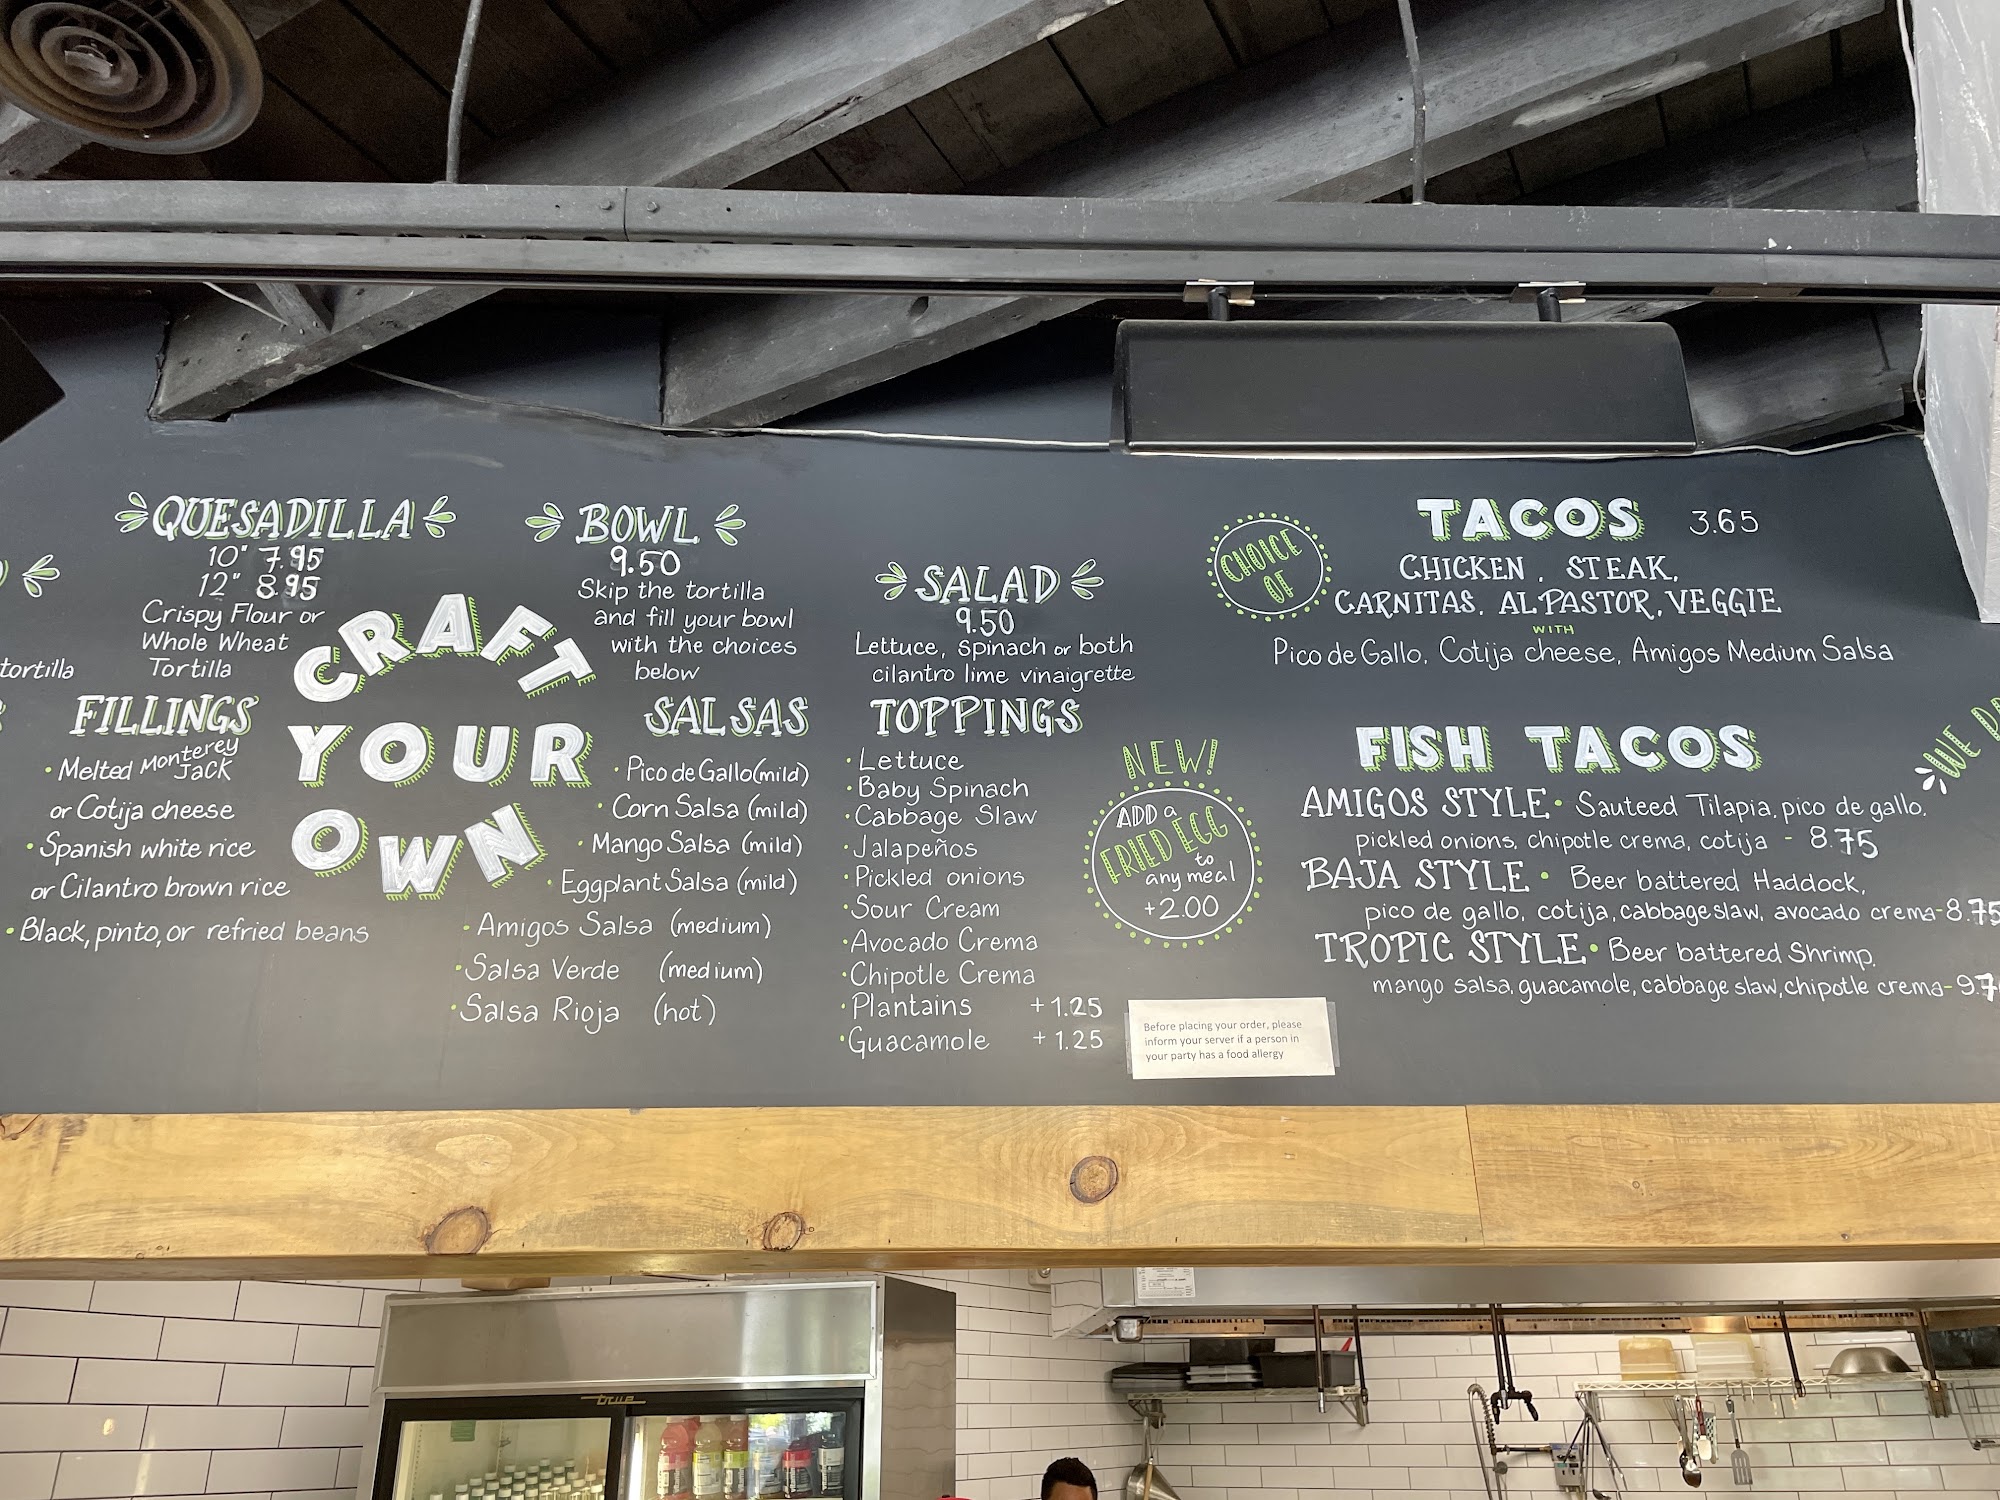 QUESADILLA
10" 7.95
12" 8.95
Crispy Flour or
Whole Wheat
Tortilla
tortilla
BOWL
9.50
Skip the tortilla
and fill your bowl
with the choices
below
SALAD
9.50
Lettuce, Spinach or both
cilantro lime vinaigrette
CRAFT
YOUR
OWN
FILLINGS
• Melted Monterey
Jack
or Cotija cheese
• Spanish white rice
or Cilantro brown rice
• Black, pinto, or refried beans
SALSAS
• Pico de Gallo (mild)
• Corn Salsa (mild)
• Mango Salsa (mild)
• Eggplant Salsa (mild)
• Amigos Salsa (medium)
• Salsa Verde (medium)
• Salsa Rioja (hot)
TOPPINGS
• Lettuce
• Baby Spinach
• Cabbage Slaw
• Jalapeños
• Pickled onions
• Sour Cream
• Avocado Crema
• Chipotle Crema
• Plantains +1.25
• Guacamole +1.25
NEW!
ADD a
FRIED EGG
to
any meal
+2.00
Before placing your order, please
inform your server if a person in
your party has a food allergy
CHOICE
OF
TACOS 3.65
CHICKEN, STEAK,
CARNITAS, AL PASTOR, VEGGIE
WITH
Pico de Gallo, Cotija cheese, Amigos Medium Salsa
FISH TACOS
AMIGOS STYLE • Sauteed Tilapia, pico de gallo,
pickled onions, chipotle crema, cotija - 8.75
BAJA STYLE • Beer battered Haddock,
pico de gallo, cotija, cabbage slaw, avocado crema - 8.75
TROPIC STYLE • Beer battered Shrimp,
mango salsa, guacamole, cabbage slaw, chipotle crema - 9.7
WE D
true